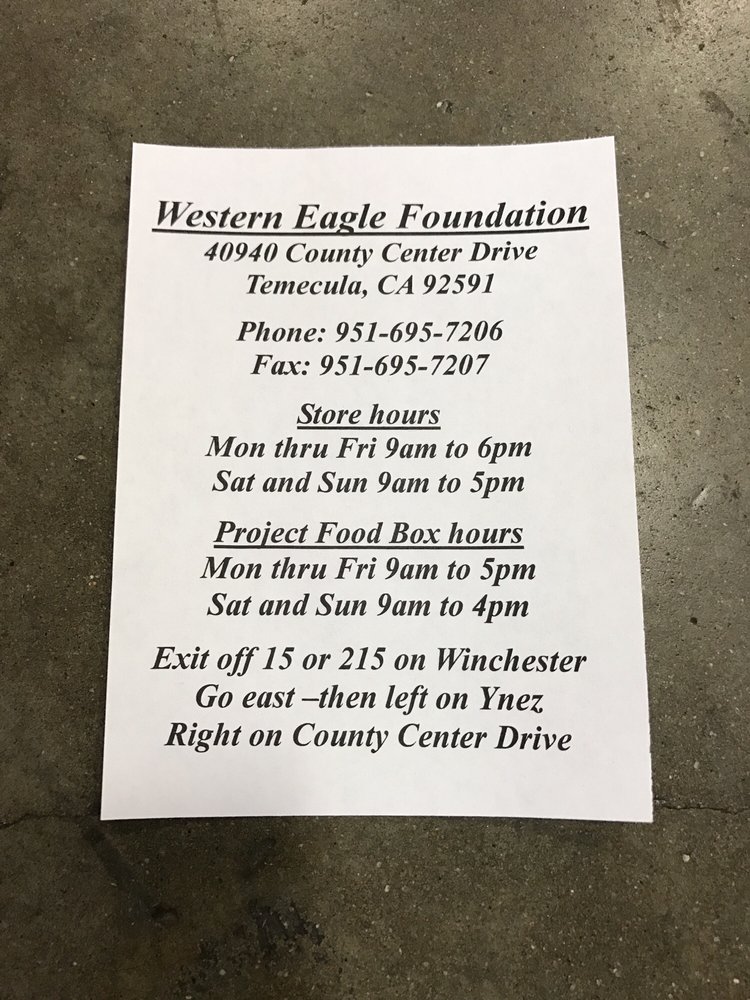 Western Eagle Foundation
40940 County Center Drive
Temecula, CA 92591
Phone: 951-695-7206
Fax: 951-695-7207
Store hours
Mon thru Fri 9am to 6pm
Sat and Sun 9am to 5pm
Project Food Box hours
Mon thru Fri 9am to 5pm
Sat and Sun 9am to 4pm
Exit off 15 or 215 on Winchester
Go east –then left on Ynez
Right on County Center Drive